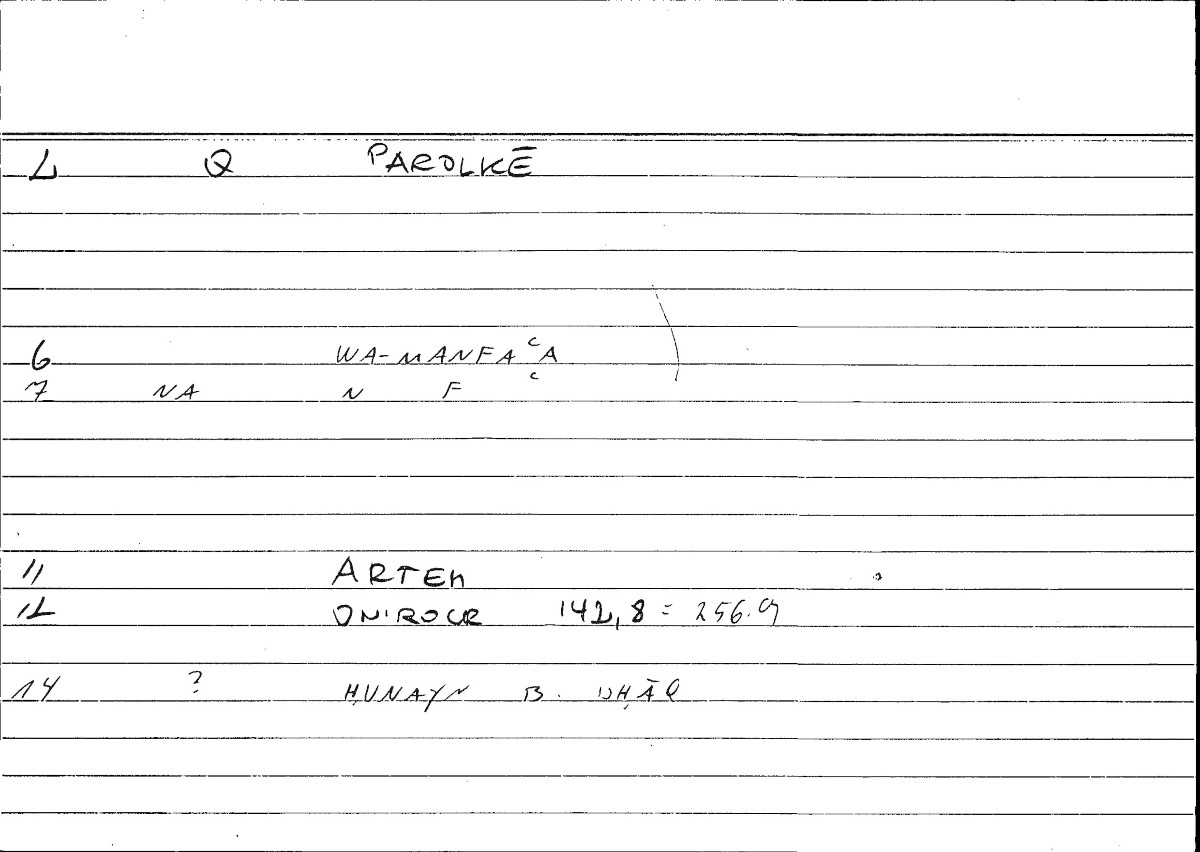 1 Q PAROLKĒ
6 WA-MANFAʿA
7 NA N F ʿ
11 ARTEM
12 ONIROCR 142,8 = 256.9
14 ? ḤUNAYN B. ISḤĀQ